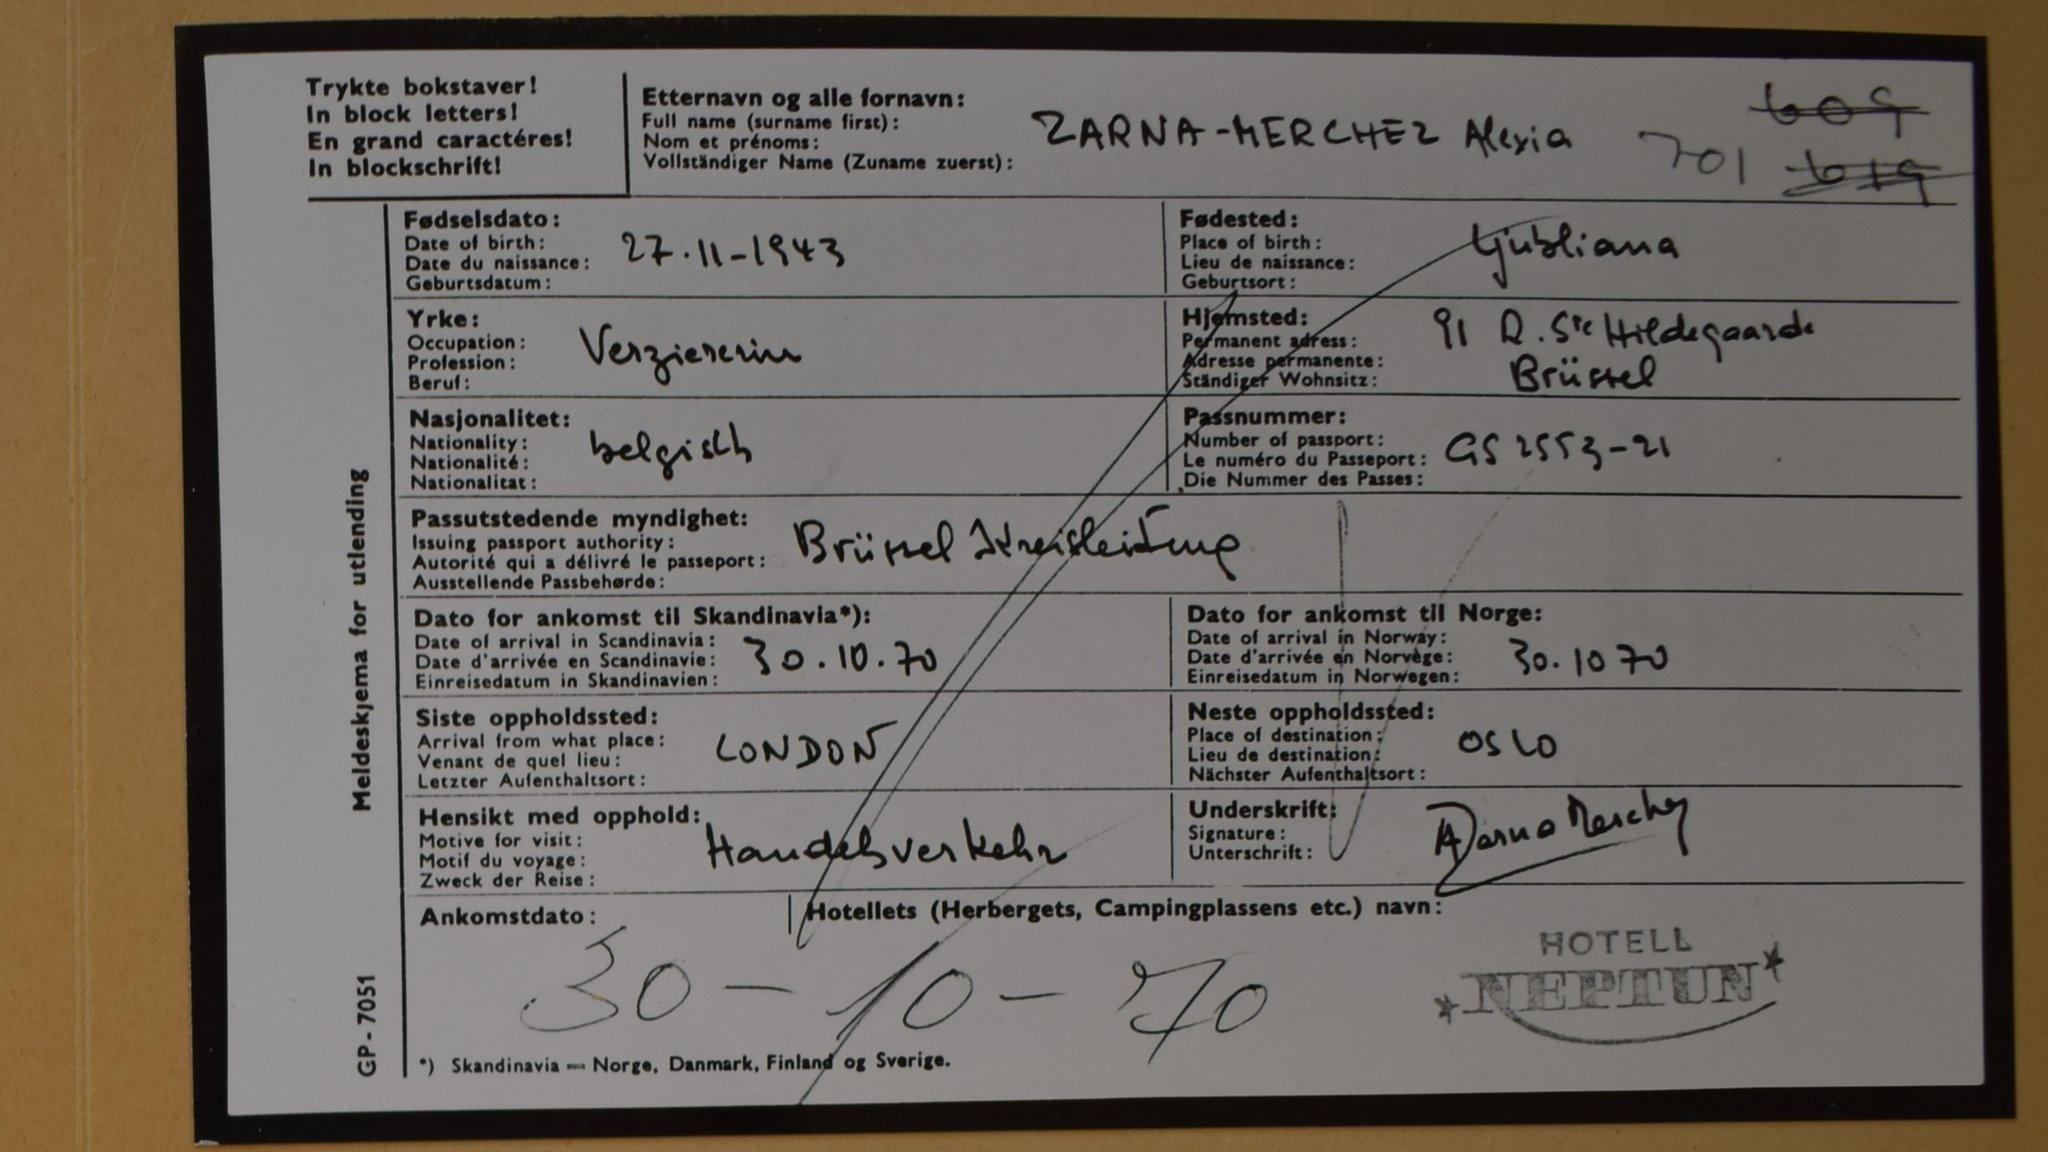 Trykte bokstaver!
In block letters!
En grand caractéres!
In blockschrift!
Etternavn og alle fornavn:
Full name (surname first):
Nom et prénoms:
Vollständiger Name (Zuname zuerst):
ZARNA-MERCHEZ Alexia
609
701 619
Meldeskjema for utlending
GP-7051
Fødselsdato:
Date of birth:
Date du naissance:
Geburtsdatum:
27.11-1943
Fødested:
Place of birth:
Lieu de naissance:
Geburtsort:
Ljubliana
Yrke:
Occupation:
Profession:
Beruf:
Verziererin
Hjemsted:
Permanent adress:
Adresse permanente:
Ständiger Wohnsitz:
91 R. Ste Hildegaarde
Brüssel
Nasjonalitet:
Nationality:
Nationalité:
Nationalitat:
belgisch
Passnummer:
Number of passport:
Le numéro du Passeport:
Die Nummer des Passes:
GS 2553-21
Passutstedende myndighet:
Issuing passport authority:
Autorité qui a délivré le passeport:
Ausstellende Passbehørde:
Brüssel Kreisleitung
Dato for ankomst til Skandinavia*):
Date of arrival in Scandinavia:
Date d'arrivée en Scandinavie:
Einreisedatum in Skandinavien:
30.10.70
Dato for ankomst til Norge:
Date of arrival in Norway:
Date d'arrivée en Norvège:
Einreisedatum in Norwegen:
30.10 70
Siste oppholdssted:
Arrival from what place:
Venant de quel lieu:
Letzter Aufenthaltsort:
LONDON
Neste oppholdssted:
Place of destination:
Lieu de destination:
Nächster Aufenthaltsort:
OSLO
Hensikt med opphold:
Motive for visit:
Motif du voyage:
Zweck der Reise:
Handelsverkehr
Underskrift:
Signature:
Unterschrift:
Ankomstdato:
30-10-70
Hotellets (Herbergets, Campingplassens etc.) navn:
HOTELL
NEPTUN
*) Skandinavia — Norge, Danmark, Finland og Sverige.